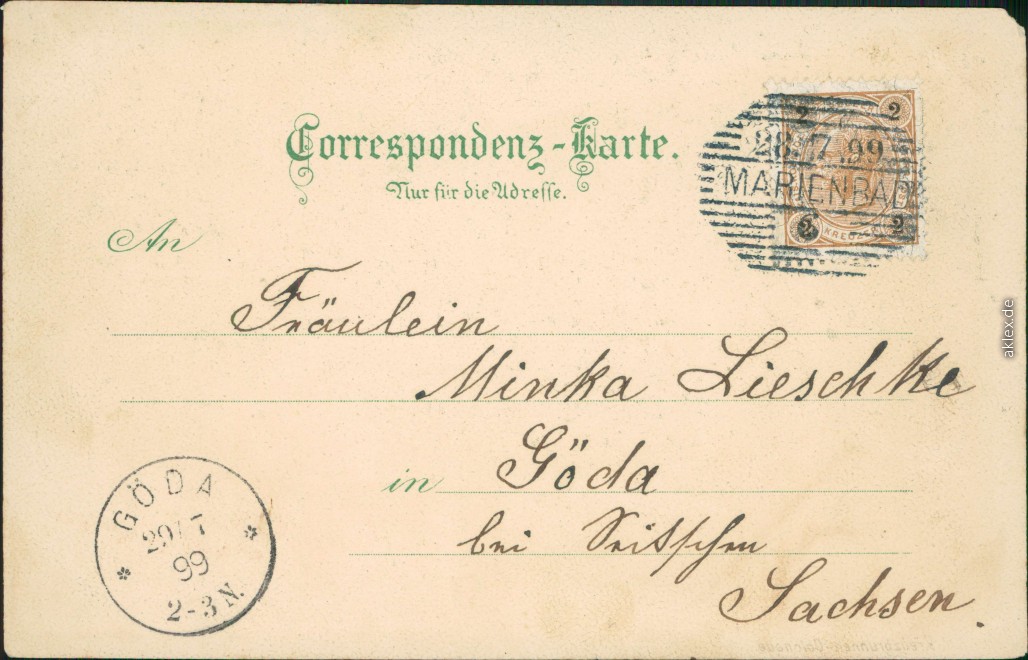 Correspondenz-Karte.
Nur für die Adresse.
2 2
28.7.99
MARIENBAD
2 2
An
Fräulein
Minka Lieschke
in Göda
bei Seitschen
Sachsen
GÖDA
29 7
99
2-3 N.
aklex.de